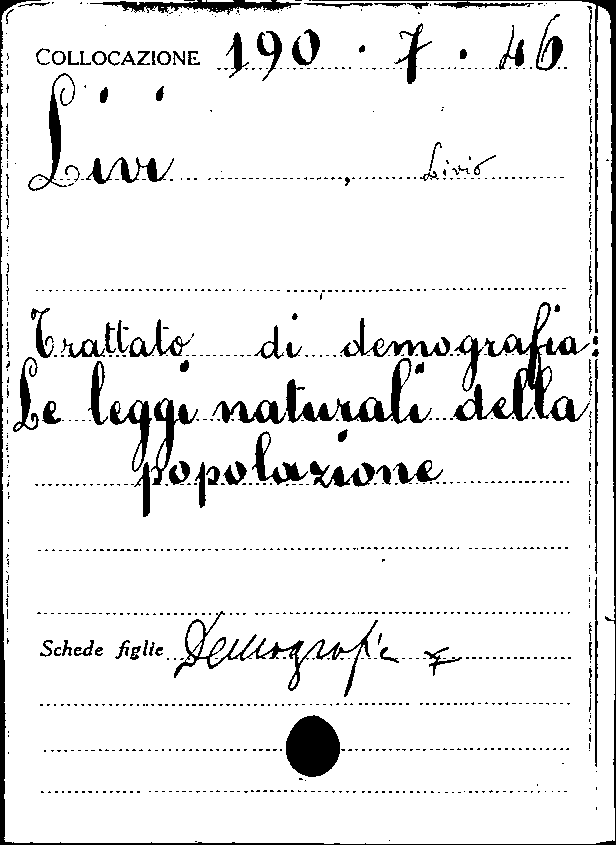 COLLOCAZIONE 190 . 7 . 46
Livi , Livio
Trattato di demografia:
Le leggi naturali della
popolazione
Schede figlie Demografie